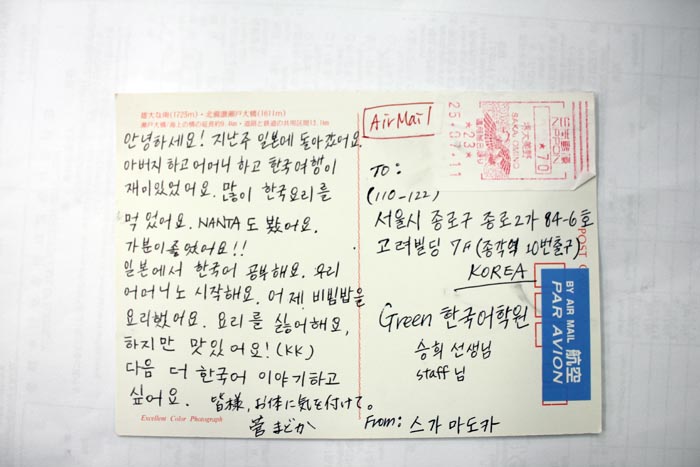 雄大な南(1723m)・北備讃瀬戸大橋(1611m)
瀬戸大橋/海上の橋の延長約9.4km・道路と鉄道の共用区間13.1km
안녕하세요! 지난주 일본에 돌아갔어요.
아버지 하고 어머니 하고 한국여행이
재미있었어요. 많이 한국요리를
먹었어요. NANTA도 봤어요.
가분이 좋았어요!!
일본에서 한국어 공부해요. 요리
어머니노 시작해요. 어제 비빔밥을
요리했어요. 요리를 싫어해요,
하지만 맛있어요! (KK)
다음 더 한국어 이야기하고
싶어요. 皆様、お体に気を付けて。
菅 まどか
Excellent Color Photograph
AirMail
25.07.11
*23*
SAKAI OMINO
*70
日本郵便
NIPPON
TO:
(110-122)
서울시 종로구 종로2가 84-6호
고려빌딩 7F (종각역 10번출구)
KOREA
POST C
BY AIR MAIL
PAR AVION
航空
Green 한국어학원
승희 선생님
staff 님
From: 스가 마도카